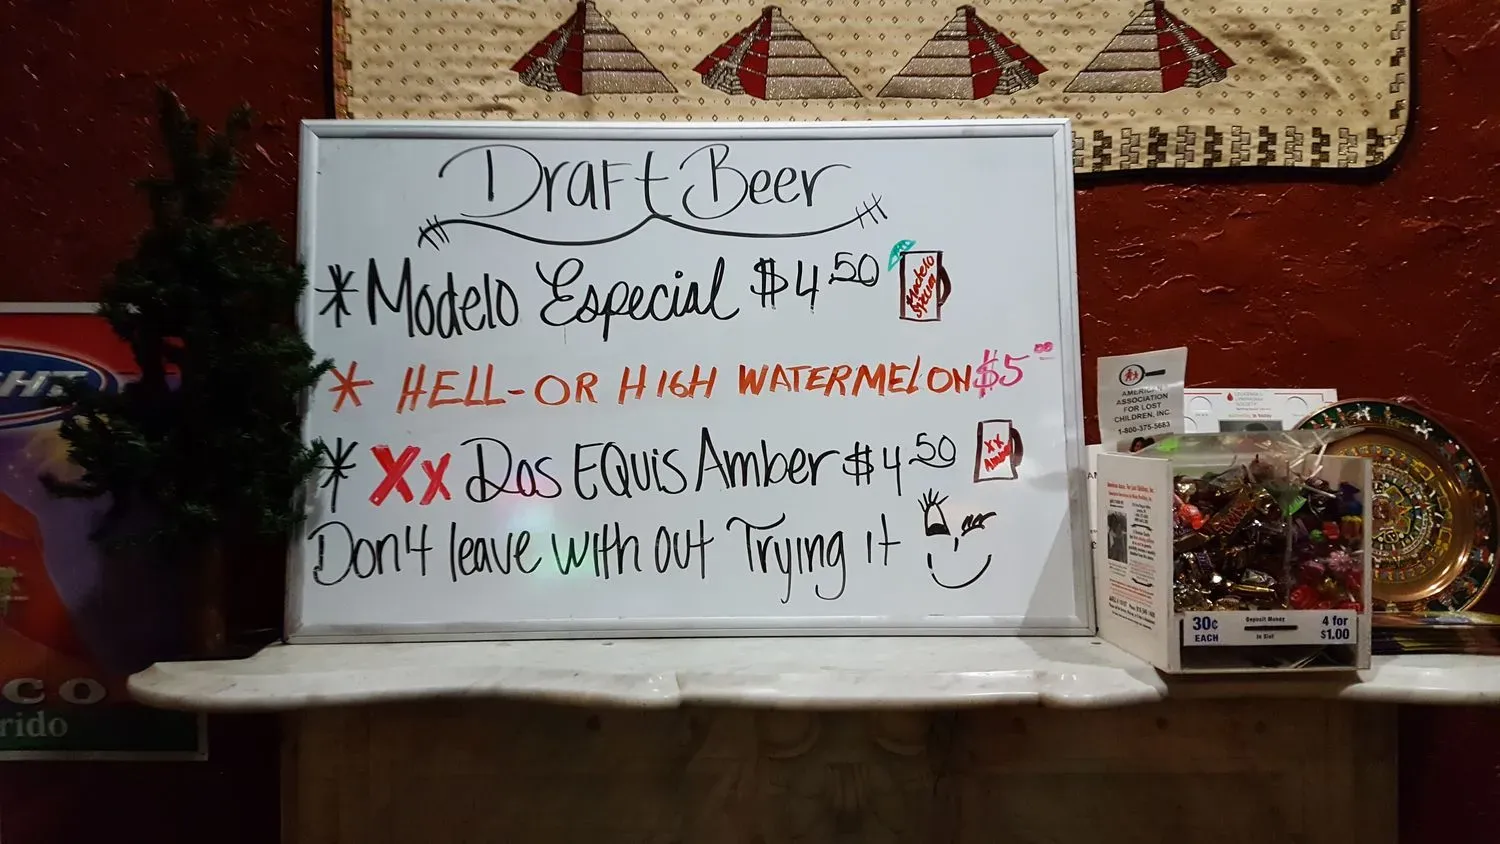 Draft Beer
* Modelo Especial $4.50
Modelo
Especial
* HELL-OR HIGH WATERMELON $5.00
* XX Dos EQuis Amber $4.50
XX
Amber
Don't leave with out Trying it
HT
CO
rido
AMERICAN
ASSOCIATION
FOR LOST
CHILDREN, INC.
1-800-375-5683
30¢
EACH
Deposit Money
in Slot
4 for
$1.00